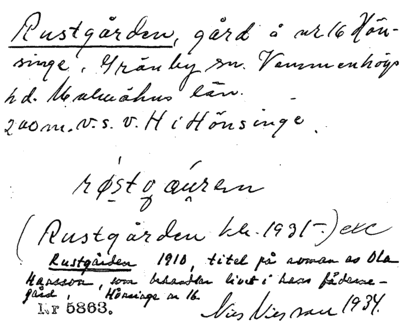 Rustgården, gård å nr 16 Hön-
singe, Grönby sn. Vemmenhögs
hd. Malmöhus län.
200 m. v. s. v. H i Hönsinge.
røstgæuren
(Rustgården kk. 1931-) etc
Rustgården 1910, titel på roman av Ola
Hansson, som behandlar livet i hans fädernes-
gård, Hönsinge nr 16.
Nr 5863. Nils 1934.